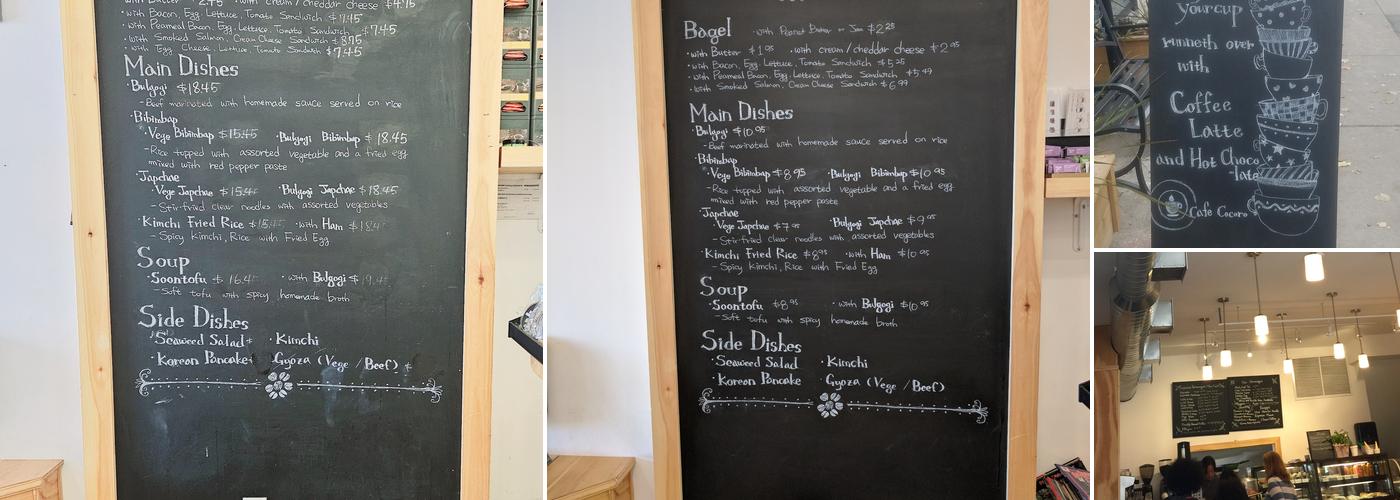 with Butter 2.45 with cream/cheddar cheese $4.45
with Bacon, Egg, Lettuce, Tomato Sandwich $7.45
with Peameal Bacon, Egg, Lettuce, Tomato Sandwich $7.45
with Smoked Salmon, Cream Cheese Sandwich $8.75
with Egg, Cheese, Lettuce, Tomato Sandwich $7.45
Main Dishes
Bulgogi $18.45
- Beef marinated with homemade sauce served on rice
Bibimbap
Vege Bibimbap $15.45 Bulgogi Bibimbap $18.45
- Rice topped with assorted vegetable and a fried egg
mixed with red pepper paste
Japchae
Vege Japchae $15.45 Bulgogi Japchae $18.45
- Stir-fried clear noodles with assorted vegetables
Kimchi Fried Rice with Ham
- Spicy Kimchi, Rice with Fried Egg
Soup
Soontofu with Bulgogi
- Soft tofu with spicy homemade broth
Side Dishes
Seaweed Salad Kimchi
Korean Pancake Gyoza (Vege / Beef)
Bagel with Peanut Butter or Jam $2.25
with Butter $1.95 with cream/cheddar cheese $2.95
with Bacon, Egg, Lettuce, Tomato Sandwich $5.25
with Peameal Bacon, Egg, Lettuce, Tomato Sandwich $5.49
with Smoked Salmon, Cream Cheese Sandwich $6.99
Main Dishes
Bulgogi $10.95
- Beef marinated with homemade sauce served on rice
Bibimbap
Vege Bibimbap $8.95 Bulgogi Bibimbap $10.95
- Rice topped with assorted vegetable and a fried egg
mixed with red pepper paste
Japchae
Vege Japchae $7.95 Bulgogi Japchae $9.95
- Stir-fried clear noodles with assorted vegetables
Kimchi Fried Rice $8.95 with Ham $10.95
- Spicy Kimchi, Rice with Fried Egg
Soup
Soontofu $8.95 with Bulgogi $10.95
- Soft tofu with spicy homemade broth
Side Dishes
Seaweed Salad Kimchi
Korean Pancake Gyoza (Vege / Beef)
your cup
runneth over
with
Coffee
Latte
and Hot Choco
-late
Cafe Cocoro